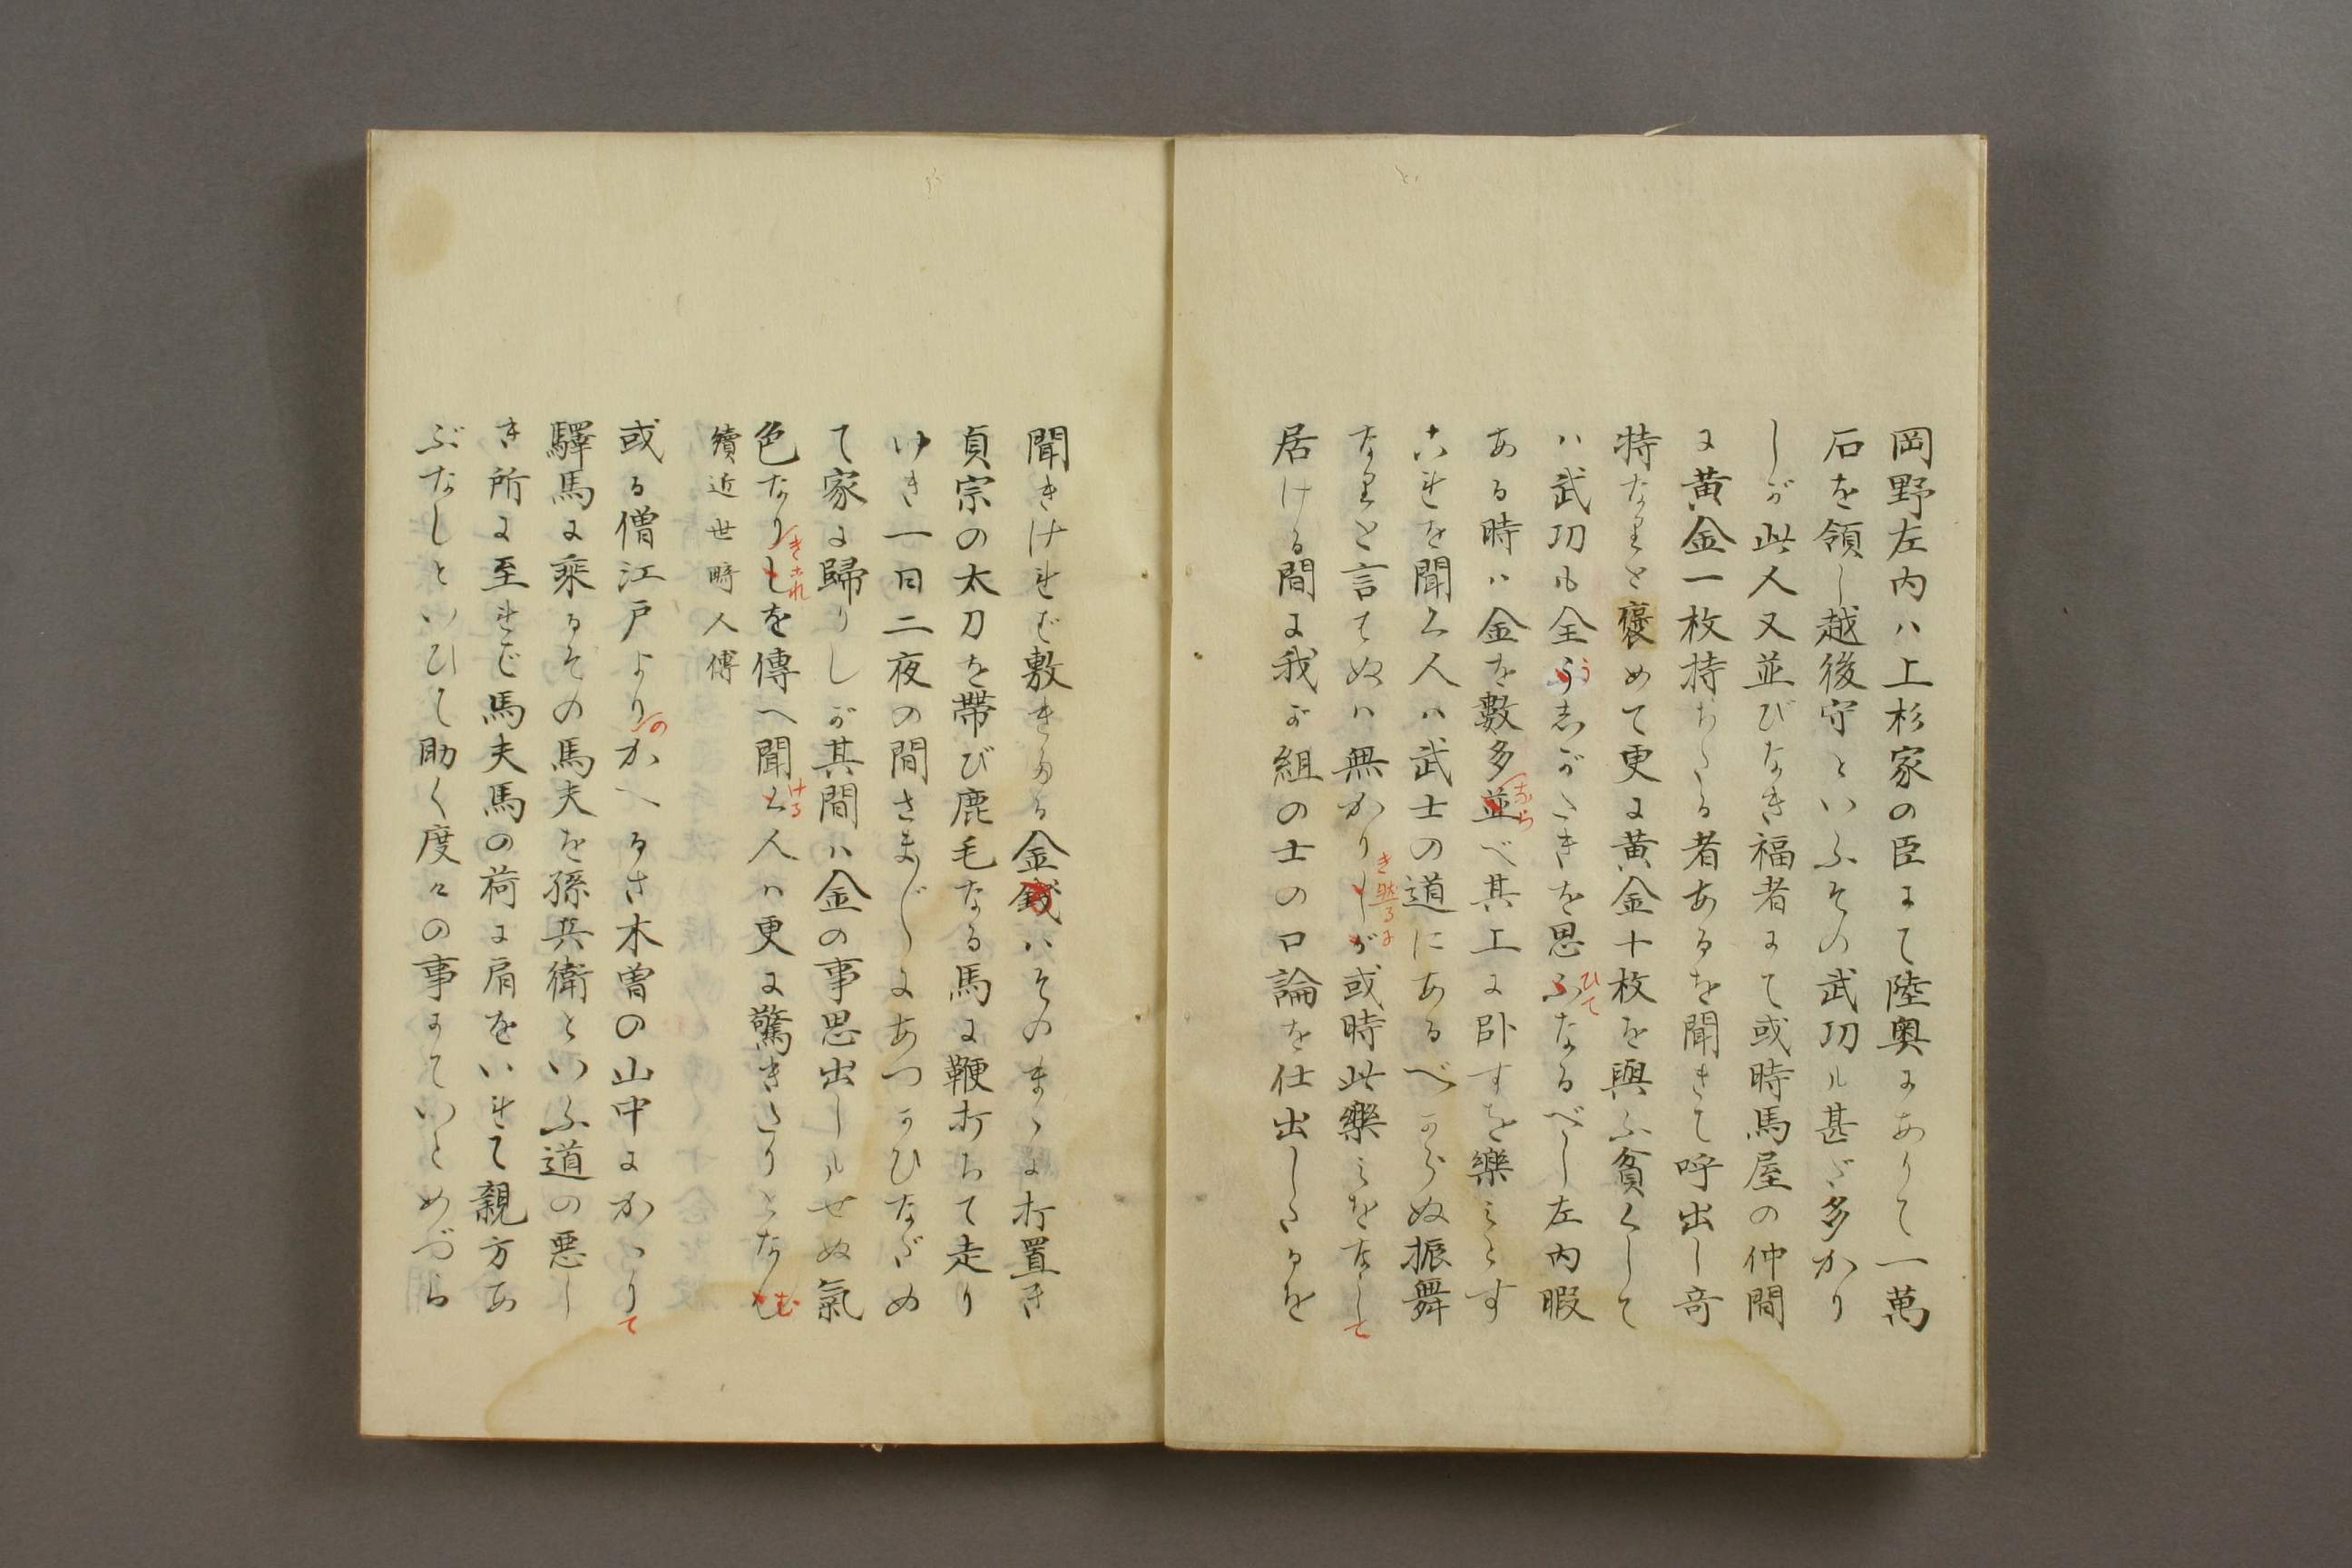 岡野左内ハ上杉家の臣にて陸奥にありて一萬
石を領し越後守といふその武功ル甚ゞ多かり
しが此人又並びなき福者にて或時馬屋の仲間
に黄金一枚持ちたる者あるを聞きて呼出し奇
特なりと褒めて更に黄金十枚を與ふ貧くして
ハ武功も全うしがたきを思ひてなるべし左内暇
ある時ハ金を數多並べ其上に臥すを樂みとす
これを聞く人ハ武士の道にあるべからぬ振舞
なりと言はぬハ無かりしが或時此樂みをなして
居ける間に我が組の士の口論を仕出したるを
聞きければ敷きたる金錢ハそのまゝに打置き
貞宗の太刀を帶び鹿毛なる馬に鞭打ちて走り
ゆき一日二夜の間さま〴〵にあつかひなだめ
て家に歸りしが其間ハ金の事思出しルせぬ氣
色なりしを傳へ聞く人ハ更に驚きたりとなむ
續近世時人傳
或る僧江戸よりのかへるさ木曽の山中にかゝりて
驛馬に乘るその馬夫を孫兵衛といふ道の悪し
き所に至れば馬夫馬の荷に肩をいれて親方あ
ぶなしといひて助く度々の事にていとめづら